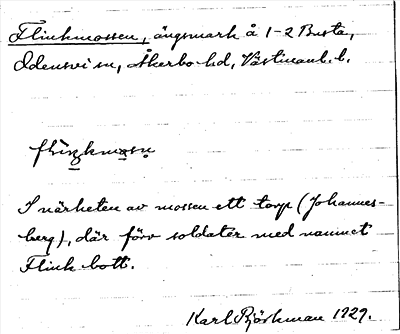 Flinkmossen, ängsmark å 1-2 Busta,
Odensvi sn, Åkerbo hd, Västmanl. l.
fliŋkmosn
I närheten av mossen ett torp (Johannes-
berg), där förr soldater med namnet
Flink bott.
Karl Björkman 1929.